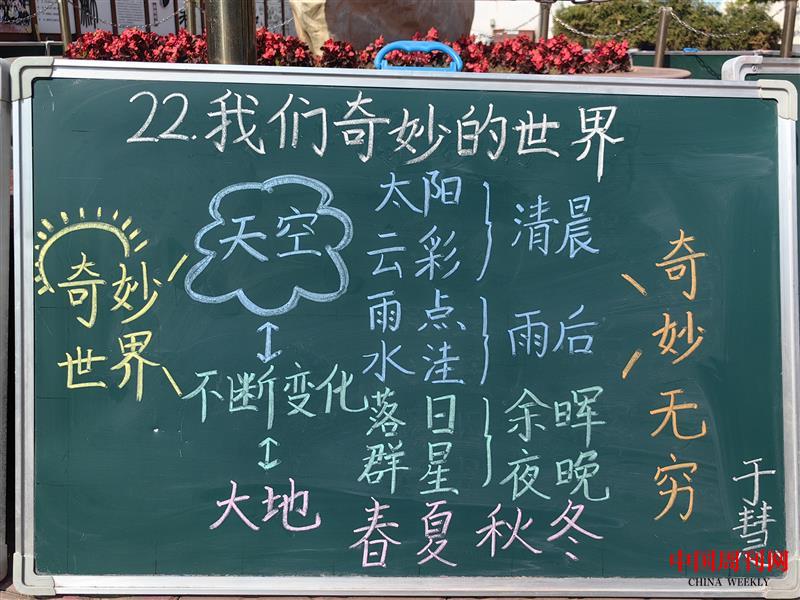 22.我们奇妙的世界
奇妙
世界
天空
不断变化
大地
太阳
云彩
清晨
雨点
水洼
雨后
落日
群星
余晖
夜晚
春夏秋冬
奇妙无穷
于彗
中国周刊网
CHINA WEEKLY